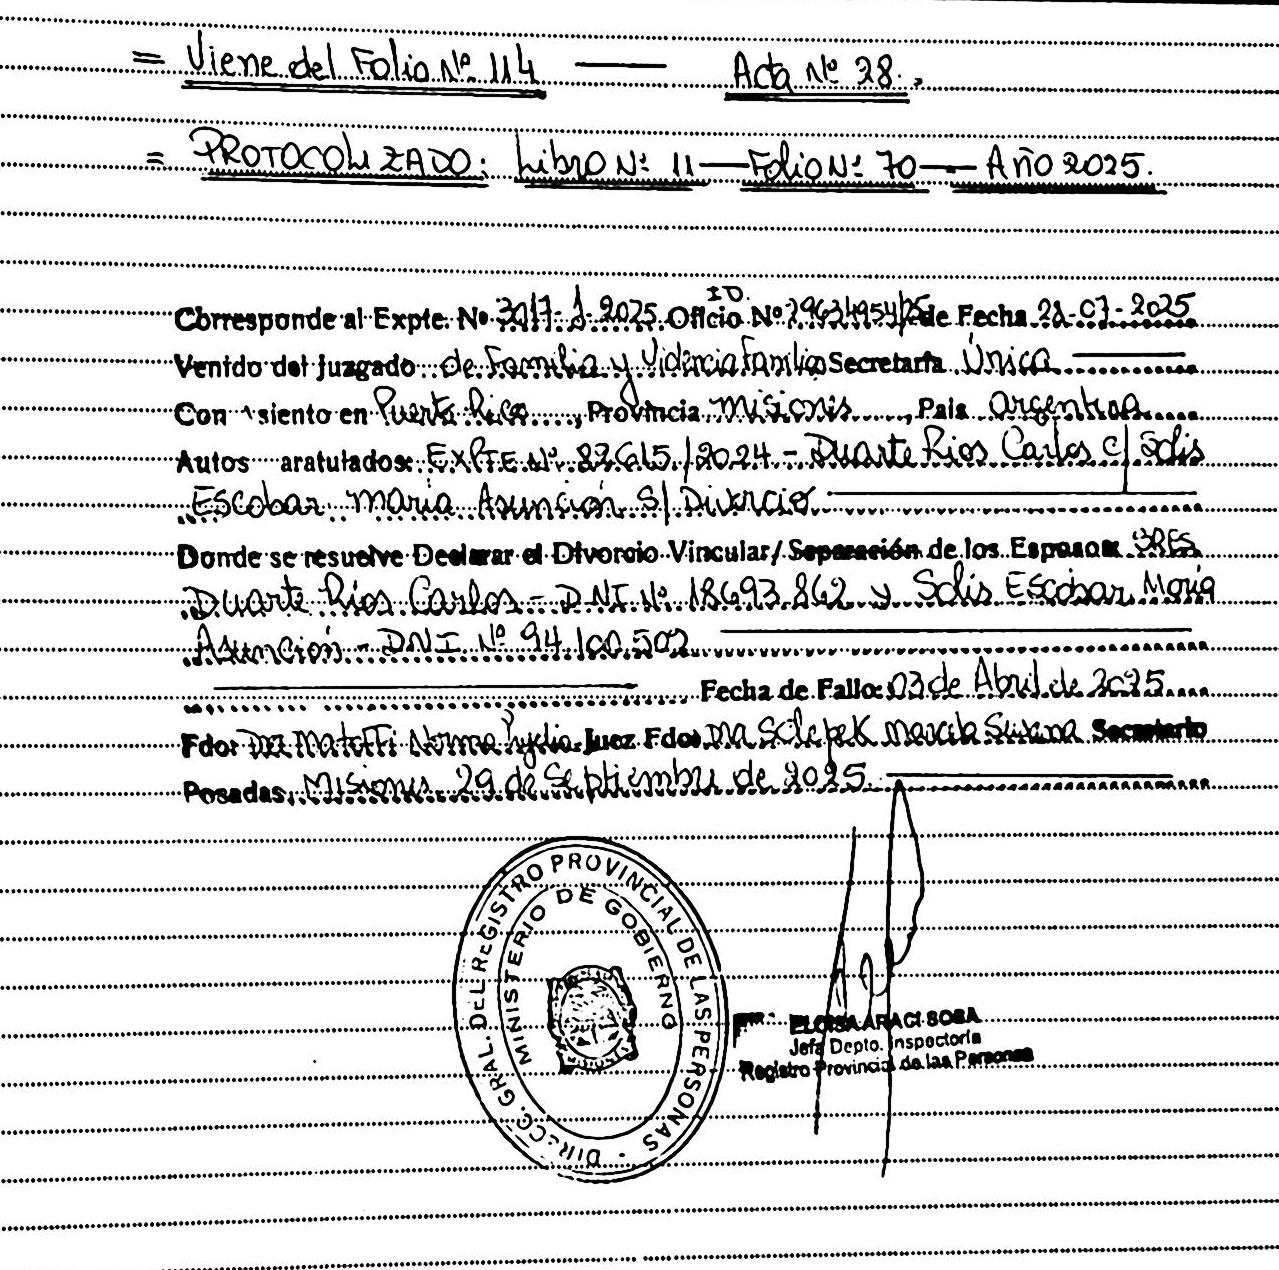 = Viene del Folio Nº 114 — Acta Nº 28.
= PROTOCOLIZADO: Libro Nº 11 — Folio Nº 70 — Año 2025.
ID
Corresponde al Expte. Nº 3017-J-2025 Oficio Nº 29634954/25 de Fecha 21-07-2025
Venido del Juzgado de Familia y Violencia Familia Secretaría Única
Con asiento en Puerto Rico, Provincia Misiones, País argentina
Autos caratulados: EXPTE Nº 82615/2024 - Duarte Rios Carlos c/ Solis
Escobar Maria Asunción S/ Divorcio
Donde se resuelve Declarar el Divorcio Vincular/ Separación de los Esposos: SRES
Duarte Rios Carlos - DNI Nº 18693.862 y Solis Escobar Maria
Asunción - DNI Nº 94.100.502
Fecha de Fallo: 03 de Abril de 2025
Fdo: Dra Matotti Norma Lydia Juez Fdo: Dra Marcela Secretario
Posadas, Misiones, 29 de Septiembre de 2025.
DIRECC. GRAL. DEL REGISTRO PROVINCIAL DE LAS PERSONAS
MINISTERIO DE GOBIERNO
ELOISA ARACI SOSA
Jefa Depto. Inspectoría
Registro Provincial de las Personas